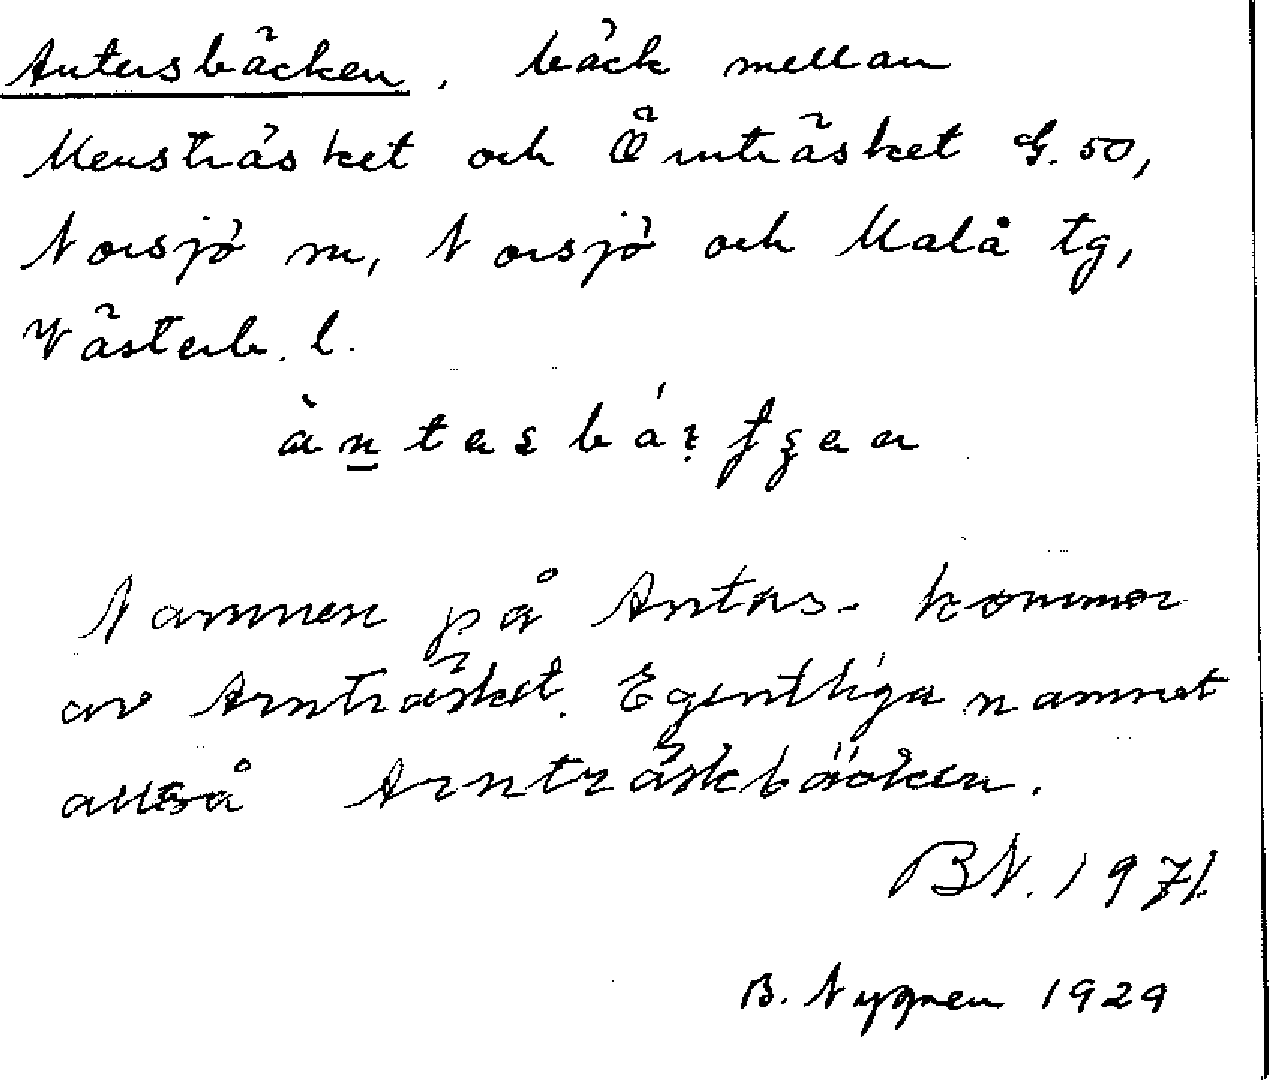 Antersbäcken, bäck mellan
Mensträsket och Örnträsket G. 50,
Norsjö sn, Norsjö och Malå tg,
Västerb. l.
Namnen på Antas- kommer
av Arnträsket. Egentliga namnet
alltså Arnträskbäcken.
BN. 1971.
B. Nygren 1929